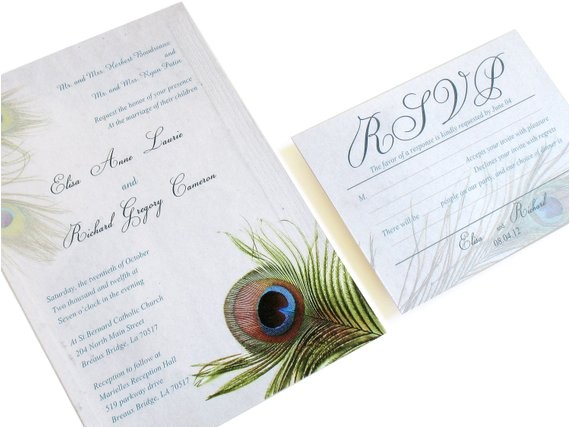 Mr. and Mrs. Herbert Boudreaux
and
Mr. and Mrs. Ryan Patin
Request the honor of your presence
At the marriage of their children
Elisa Anne Laurie
and
Richard Gregory Cameron
Saturday, the twentieth of October
Two thousand and twelfth at
Seven o'clock in the evening
At St Bernard Catholic Church
204 North Main Street
Breaux Bridge, La 70517
Reception to follow at
Marielles Reception Hall
519 parkway drive
Breaux Bridge, La 70517
RSVP
The favor of a response is kindly requested by June 04
M
Accepts your invite with pleasure
Declines your invite with regrets
There will be people on our party, and our choice of dinner is
Elisa and Richard
08.04.12